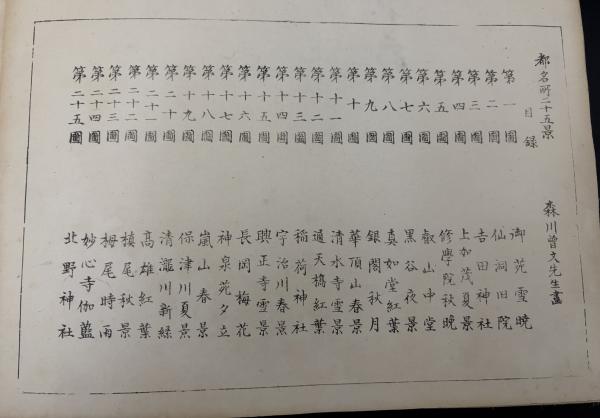 都名所二十五景
目録
森川曾文先生畫
第一圖 御苑雪曉
第二圖 仙洞旧院
第三圖 吉田神社
第四圖 上如茂夏景
第五圖 修學院秋晩
第六圖 叡山中堂
第七圖 黒谷夜景
第八圖 真如堂紅葉
第九圖 銀閣秋月
第十圖 華頂山春景
第十一圖 清水寺雪景
第十二圖 通天橋紅葉
第十三圖 稲荷神社
第十四圖 宇治川春景
第十五圖 興正寺雪景
第十六圖 長岡梅花
第十七圖 神泉苑夕立
第十八圖 嵐山春景
第十九圖 保津川夏景
第二十圖 清瀧川新緑
第二十一圖 高雄紅葉
第二十二圖 槙尾秋景
第二十三圖 栂尾時雨
第二十四圖 妙心寺伽藍
第二十五圖 北野神社